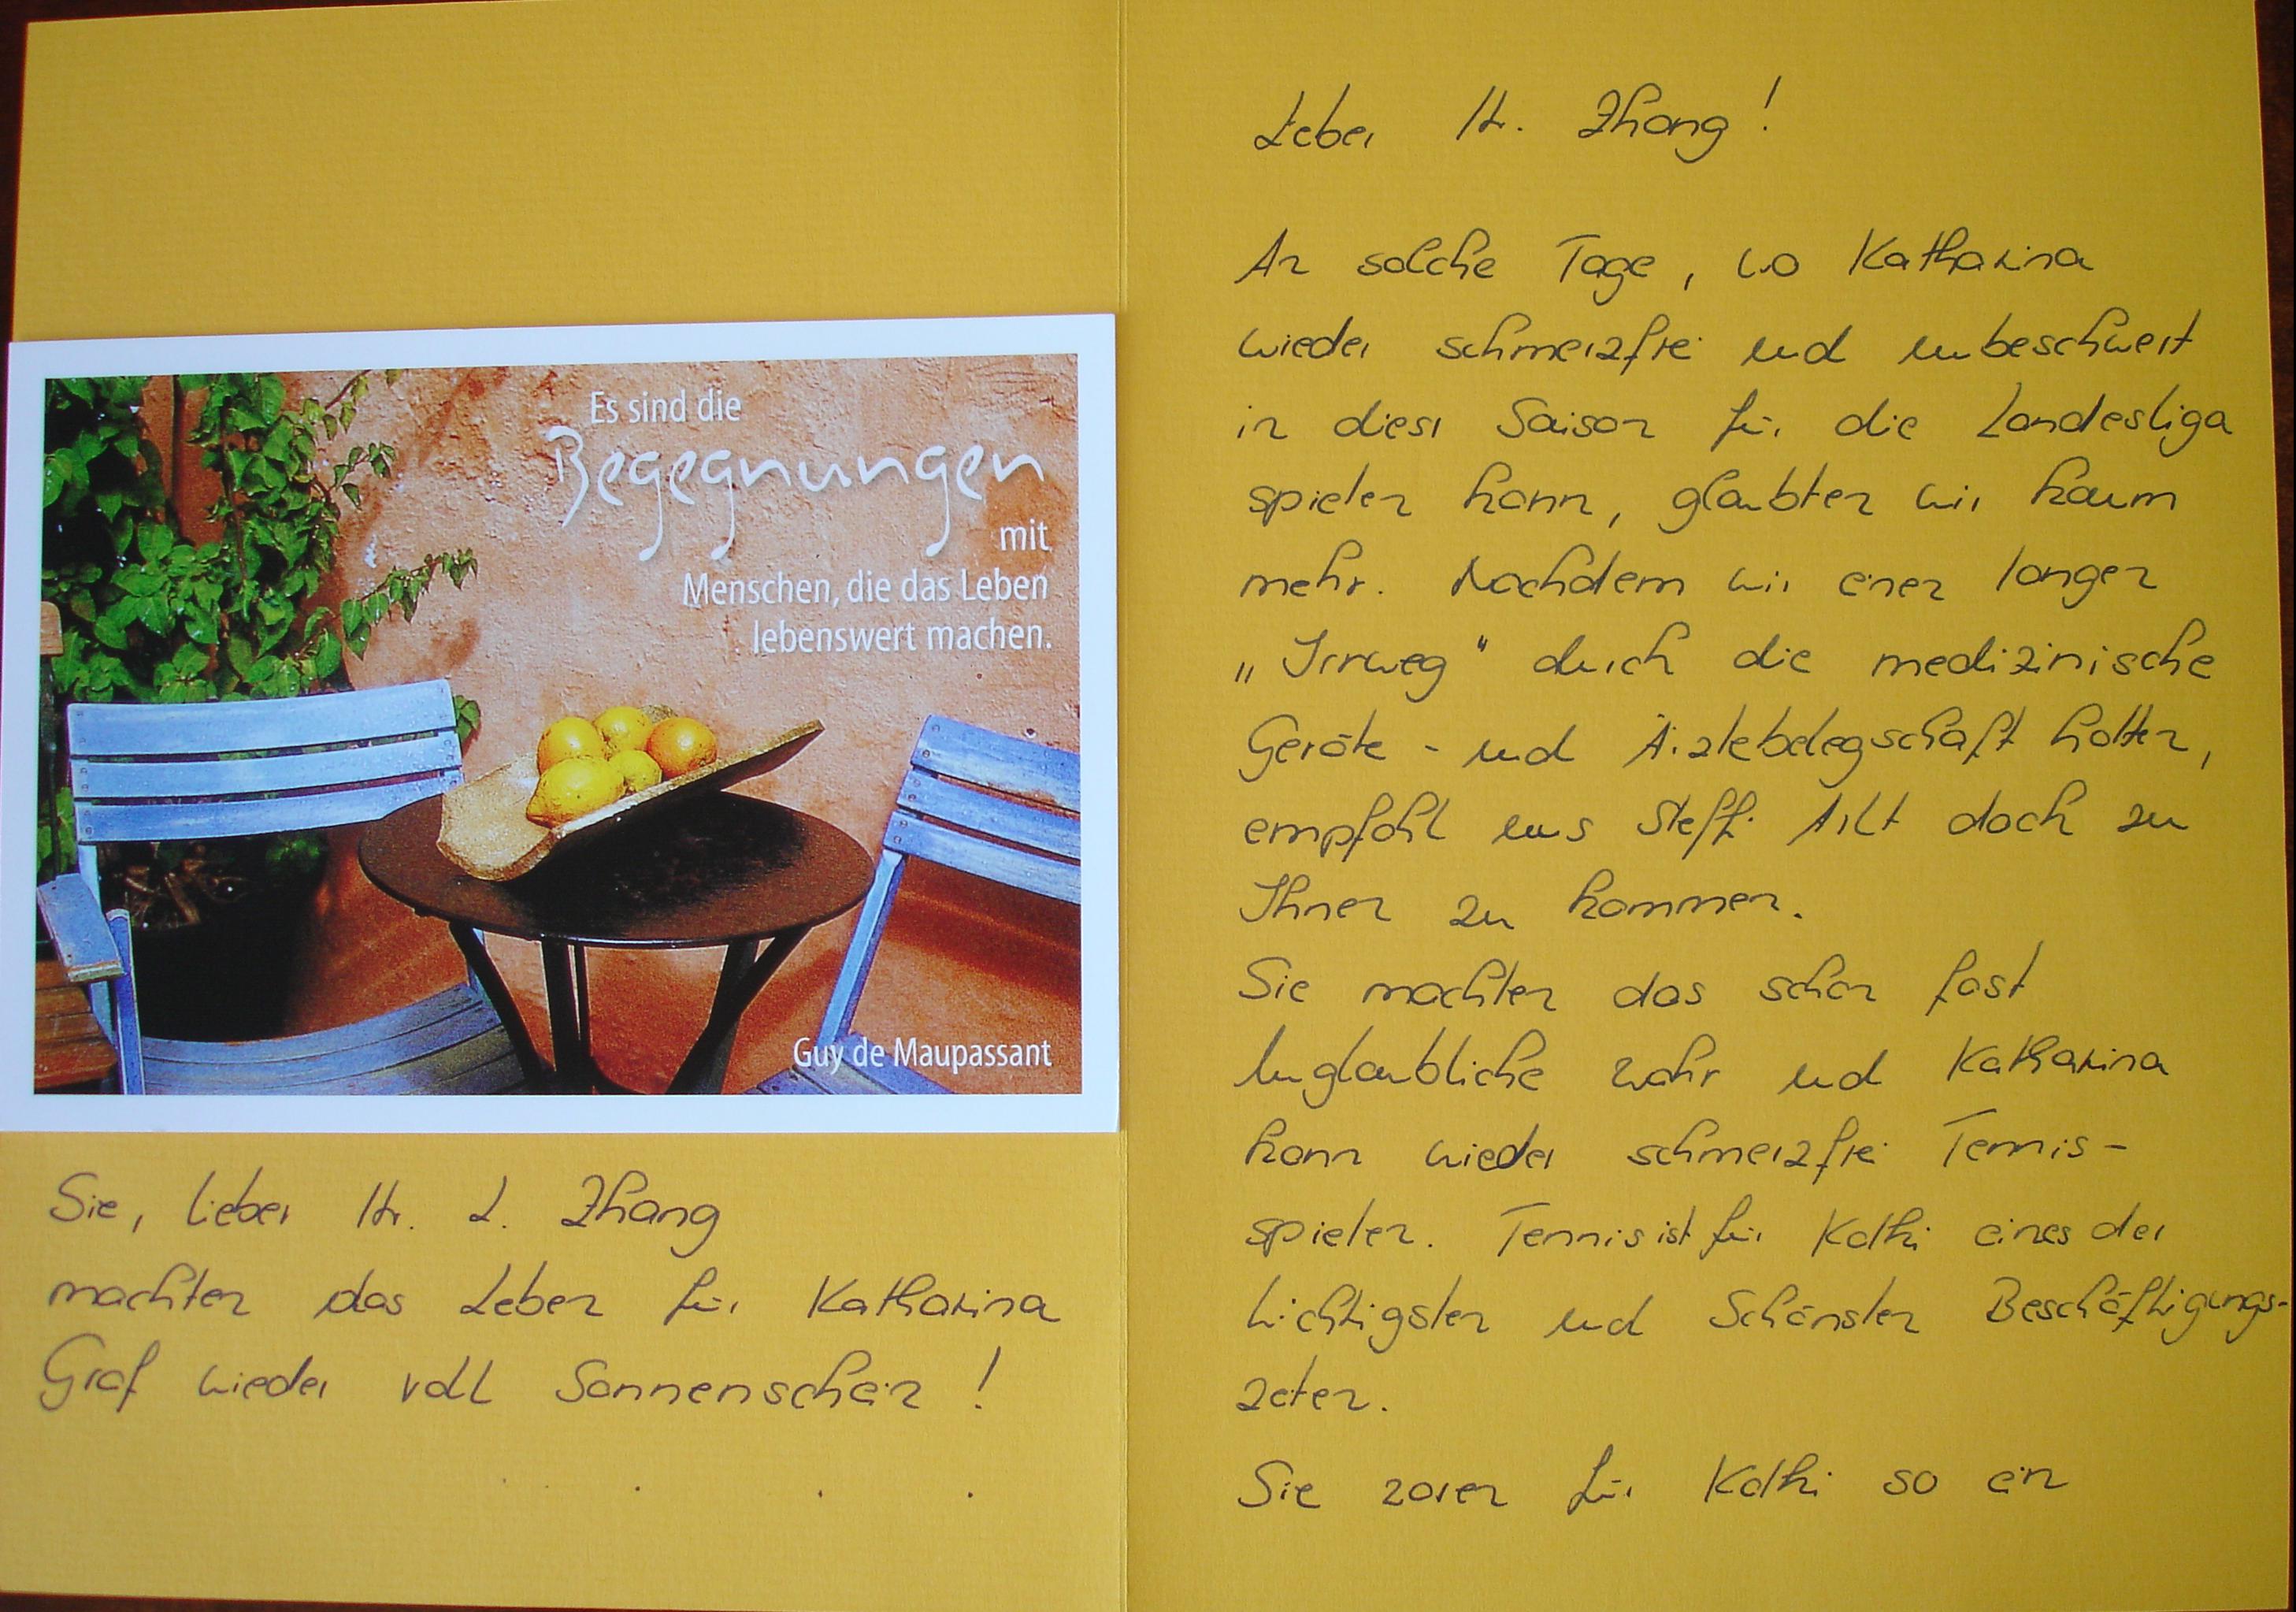 Es sind die
Begegnungen
mit
Menschen, die das Leben
lebenswert machen.
Guy de Maupassant
Sie, lieber Hr. L. Zhang
machten das Leben für Katharina
Graf wieder voll Sonnenschein !
Lieber Hr. Zhang !
An solche Tage, wo Katharina
wieder schmerzfrei und unbeschwert
in dieser Saison für die Landesliga
spielen kann, glaubten wir kaum
mehr. Nachdem wir einen langen
„Irrweg" durch die medizinische
Geräte- und Ärztebelegschaft hatten,
empfohl uns Steffi Arlt doch zu
Ihnen zu kommen.
Sie machten das schon fast
Unglaubliche wahr und Katharina
kann wieder schmerzfrei Tennis-
spielen. Tennis ist für Kathi eines der
Wichtigsten und Schönsten Beschäftigungs-
zeiten.
Sie waren für Kathi so ein